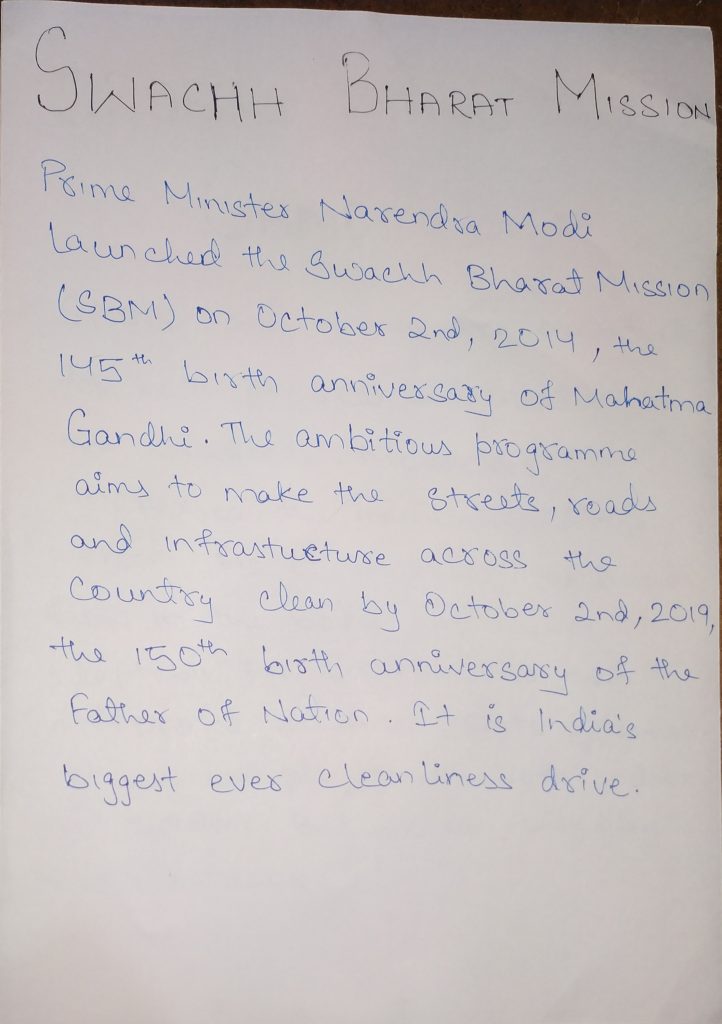 SWACHH BHARAT MISSION
Prime Minister Narendra Modi
launched the Swachh Bharat Mission
(SBM) on October 2nd, 2014, the
145th birth anniversary of Mahatma
Gandhi. The ambitious programme
aims to make the streets, roads
and infrastucture across the
Country clean by October 2nd, 2019,
the 150th birth anniversary of the
Father of Nation. It is India's
biggest ever cleanliness drive.